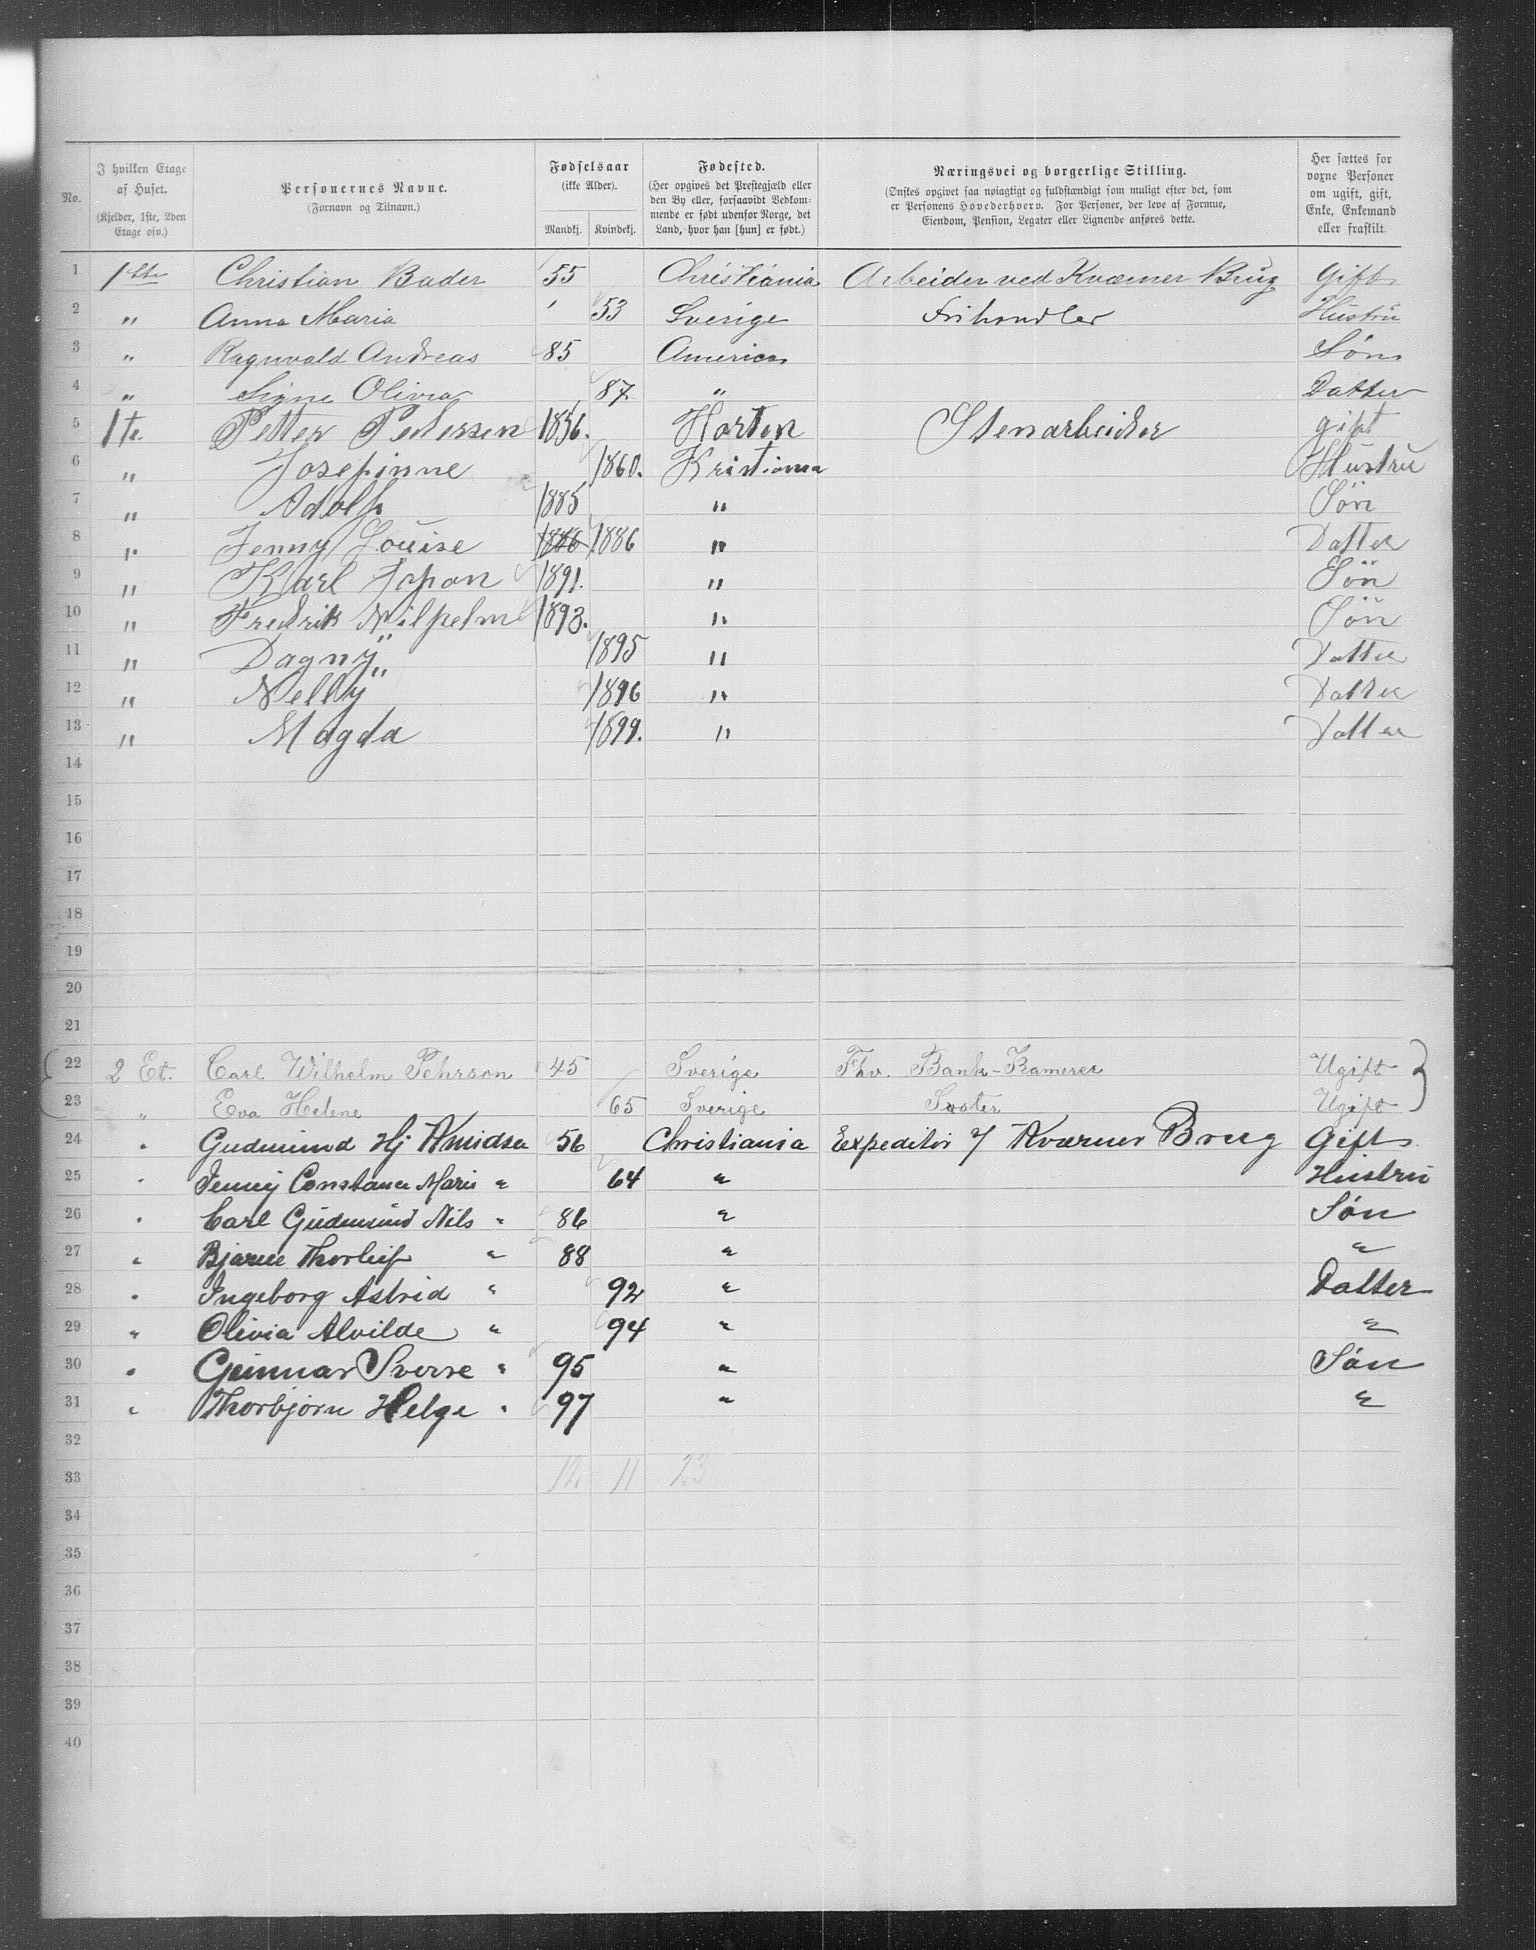 No. | I hvilken Etage af Huset. (Kjelder, 1ste, 2den Etage osv.) | Personernes Navne. (Fornavn og Tilnavn.) | Fødselsaar (ikke Alder). Mandkj. | Kvindekj. | Fødested. (Her opgives det Prestegjæld eller den By eller, forsaavidt Vedkommende er født udenfor Norge, det Land, hvor han [hun] er født.) | Næringsvei og borgerlige Stilling. (Ønskes opgivet saa nøiagtigt og fuldstændigt som muligt efter det, som er Personens Hovederhverv. For Personer, der leve af Formue, Eiendom, Pension, Legater eller Lignende anføres dette. | Her sættes for voxne Personer om ugift, gift, Enke, Enkemand eller fraskilt.
1 1ste Christian Bader 55 Christiania Arbeider ved Kværner Brug Gift
2 " Anna Maria 53 Sverige Frihandler Hustru
3 " Ragnvald Andreas 85 America Søn
4 " Signe Olivia 87 " Datter
5 1te. Petter Pedersen 1856. Horten Stenarbeider gift
6 " Josepinne 1860. Kristiania Hustru
7 " Adolf 1885 " Søn
8 " Jenny Louise 1886 1886 " Datter
9 " Karl Johan 1891. " Søn
10 " Fredrik Vilhelm 1893. " Søn
11 " Dagny 1895 " Datter
12 " Nelly 1896 " Datter
13 " Magda 1899. " Datter
14
15
16
17
18
19
20
21
22 2 Et. Carl Wilhelm Pehrson 45 Sverige Fhv. Bank-Kamerer Ugift
23 " Eva Helene 65 Sverige Søster Ugift
24 " Gudmund Hj Knudsen 56 Christiania Expeditør v/ Kværner Brug Gift
25 " Jenny Constance Marie " 64 " Hustru
26 " Carl Gudmund Nils " 86 " Søn
27 " Bjarne Thorleif " 88 " "
28 " Ingeborg Astrid " 92 " Datter
29 " Olivia Alvilde " 94 " "
30 " Gunnar Sverre " 95 " Søn
31 " Thorbjørn Helge " 97 " "
32
33 12 11 23
34
35
36
37
38
39
40